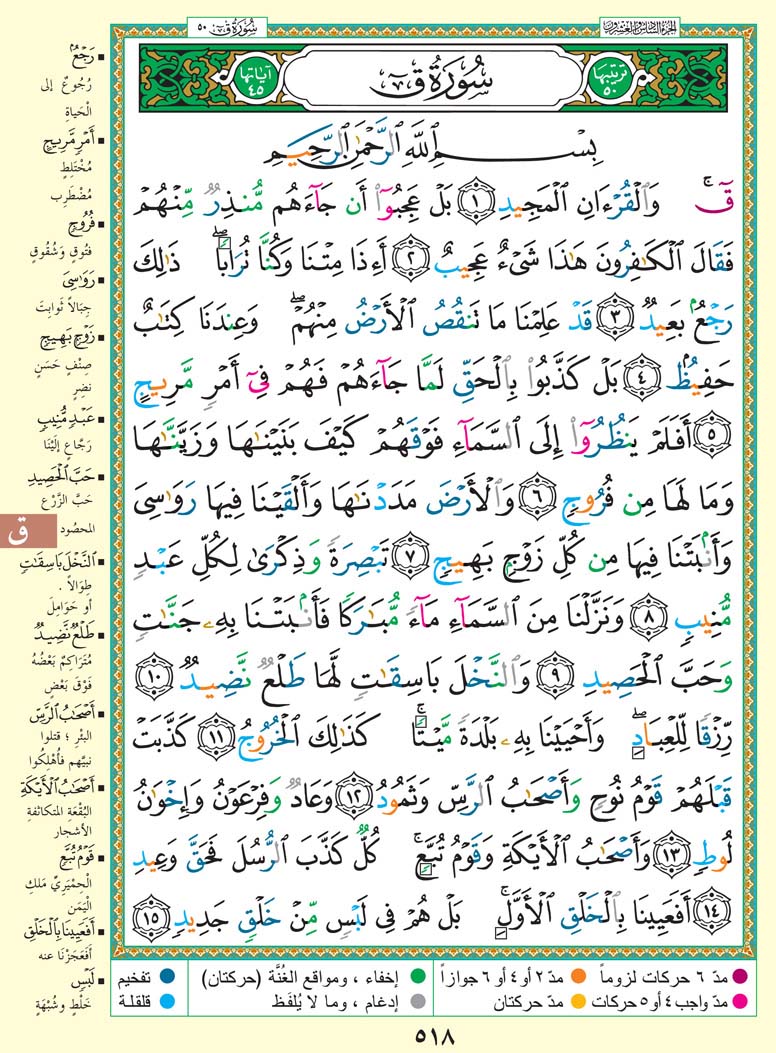 الجزء السادس والعشرون
سُورَةُ قٓ ٥٠
ترتيبها ٥٠
سُورَةُ قٓ
آياتها ٤٥
بِسْمِ ٱللَّهِ ٱلرَّحْمَٰنِ ٱلرَّحِيمِ
قٓ ۚ وَٱلْقُرْءَانِ ٱلْمَجِيدِ ۝١ بَلْ عَجِبُوٓا۟ أَن جَآءَهُم مُّنذِرٌ مِّنْهُمْ
فَقَالَ ٱلْكَٰفِرُونَ هَٰذَا شَىْءٌ عَجِيبٌ ۝٢ أَءِذَا مِتْنَا وَكُنَّا تُرَابًا ۖ ذَٰلِكَ
رَجْعٌۢ بَعِيدٌ ۝٣ قَدْ عَلِمْنَا مَا تَنقُصُ ٱلْأَرْضُ مِنْهُمْ ۖ وَعِندَنَا كِتَٰبٌ
حَفِيظٌۢ ۝٤ بَلْ كَذَّبُوا۟ بِٱلْحَقِّ لَمَّا جَآءَهُمْ فَهُمْ فِىٓ أَمْرٍ مَّرِيجٍ
۝٥ أَفَلَمْ يَنظُرُوٓا۟ إِلَى ٱلسَّمَآءِ فَوْقَهُمْ كَيْفَ بَنَيْنَٰهَا وَزَيَّنَّٰهَا
وَمَا لَهَا مِن فُرُوجٍ ۝٦ وَٱلْأَرْضَ مَدَدْنَٰهَا وَأَلْقَيْنَا فِيهَا رَوَٰسِىَ
وَأَنۢبَتْنَا فِيهَا مِن كُلِّ زَوْجٍۭ بَهِيجٍ ۝٧ تَبْصِرَةً وَذِكْرَىٰ لِكُلِّ عَبْدٍ
مُّنِيبٍ ۝٨ وَنَزَّلْنَا مِنَ ٱلسَّمَآءِ مَآءً مُّبَٰرَكًا فَأَنۢبَتْنَا بِهِۦ جَنَّٰتٍ
وَحَبَّ ٱلْحَصِيدِ ۝٩ وَٱلنَّخْلَ بَاسِقَٰتٍ لَّهَا طَلْعٌ نَّضِيدٌ ۝١٠
رِّزْقًا لِّلْعِبَادِ ۖ وَأَحْيَيْنَا بِهِۦ بَلْدَةً مَّيْتًا ۚ كَذَٰلِكَ ٱلْخُرُوجُ ۝١١ كَذَّبَتْ
قَبْلَهُمْ قَوْمُ نُوحٍ وَأَصْحَٰبُ ٱلرَّسِّ وَثَمُودُ ۝١٢ وَعَادٌ وَفِرْعَوْنُ وَإِخْوَٰنُ
لُوطٍ ۝١٣ وَأَصْحَٰبُ ٱلْأَيْكَةِ وَقَوْمُ تُبَّعٍ ۚ كُلٌّ كَذَّبَ ٱلرُّسُلَ فَحَقَّ وَعِيدِ
۝١٤ أَفَعَيِينَا بِٱلْخَلْقِ ٱلْأَوَّلِ ۚ بَلْ هُمْ فِى لَبْسٍ مِّنْ خَلْقٍ جَدِيدٍ ۝١٥
رَجْعٌ
رُجُوعٌ إلى
الْحَياةِ
أَمْرٍ مَّرِيجٍ
مُخْتَلِطٍ
مُضْطَرِبٍ
فُرُوجٍ
فتُوقٍ وَشُقُوقٍ
رَوَٰسِىَ
جِبَالاً ثَوابِتَ
زَوْجٍ بَهِيجٍ
صِنْفٍ حَسَنٍ
نضِرٍ
عَبْدٍ مُّنِيبٍ
رَجَّاعٍ إلَيْنَا
حَبَّ ٱلْحَصِيدِ
حَبَّ الزَّرْعِ
المحصُودِ
ق
ٱلنَّخْلَ بَاسِقَٰتٍ
طِوَالاً .
أو حَوامِلَ
طَلْعٌ نَّضِيدٌ
مُتَراكِمٌ بَعْضُهُ
فَوْقَ بَعْضٍ
أَصْحَٰبُ ٱلرَّسِّ
البئرِ ؛ قتلوا
نبيَّهم فأُهْلِكوا
أَصْحَٰبُ ٱلْأَيْكَةِ
البُقْعَةِ المتكاثفةِ
الأشجار
قَوْمُ تُبَّعٍ
الْحِمْيَرِيِّ مَلكِ
اليَمَنِ
أَفَعَيِينَا بِٱلْخَلْقِ
أَفَعَجَزْنَا عنه
لَبْسٍ
خَلْطٍ وشُبْهَةٍ
مدّ ٦ حركات لزوماً مدّ ٢ أو ٤ أو ٦ جوازاً إخفاء ، ومواقع الغُنَّة (حركتان) تفخيم
مدّ واجب ٤ أو ٥ حركات مدّ حركتان إدغام ، وما لا يُلفَظ قلقلة
٥١٨